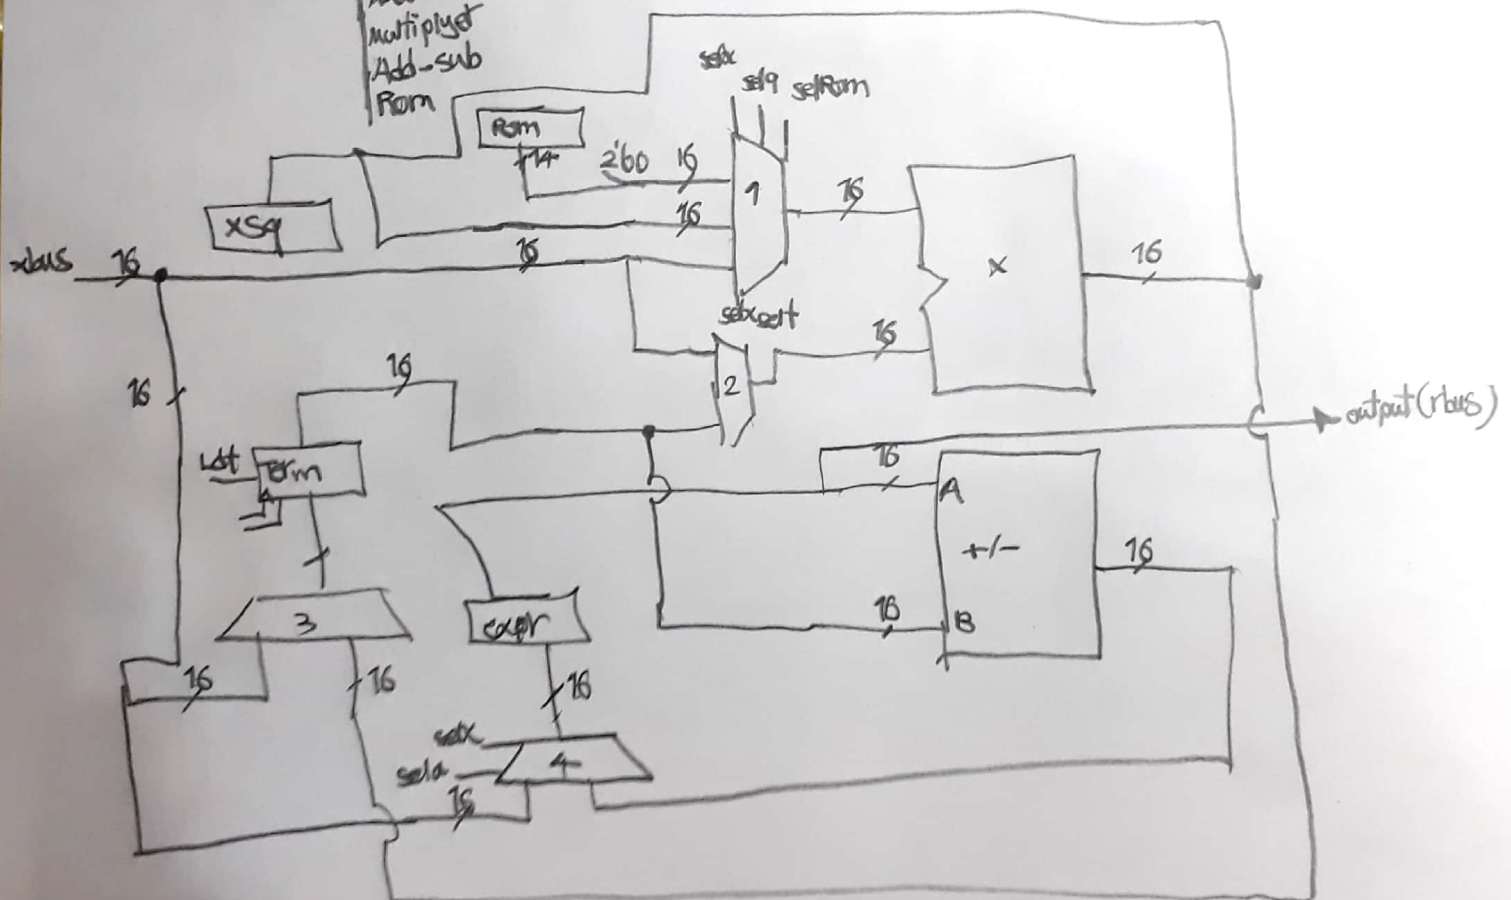 multiplyet
Add-sub
Rom
selx
selq
selRom
Rom
14
2'b0
16
1
16
16
xsq
16
x
16
xbus
16
16
selx
selt
16
2
16
16
output(rbus)
Ldt
Term
16
A
+/-
16
3
expr
16
B
16
16
16
selx
4
sela
16